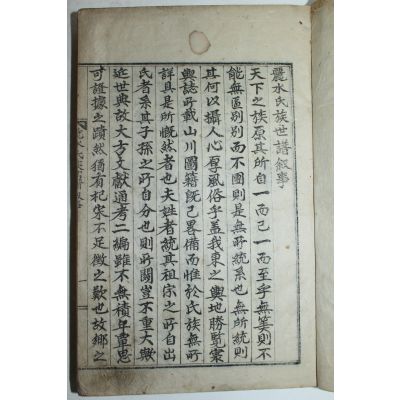 麗水氏族世譜敘事
天下之族原其所自一而已一而至乎無筭則不
能無區別別而不圖則是無所統系也無所統則
其何以攝人心厚風俗乎盖我東之輿地勝覧寀
輿誌所載山川圖籍旣已畧備而惟於氏族無所
詳具是所慨然者也夫姓者統其祖宗之所自出
氏者系其子孫之所自分也則所關豈不重大歟
近世典故大古文獻通考二編雖不無積年睾思
可證據之蹟然猶有杞宋不足徵之歎也故鄉之